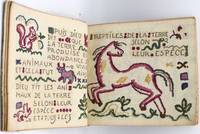 PUIS DIEU
DIT QUE
LA TERRE
PRODUISE
ANIMAUX
ET CELA FUT
DIEU FIT LES ANI
MAUX DE LA TERRE
SELON LEUR
ESPECE
REPTILES DE LA TERRE
SELON
LEUR ESPÈCE